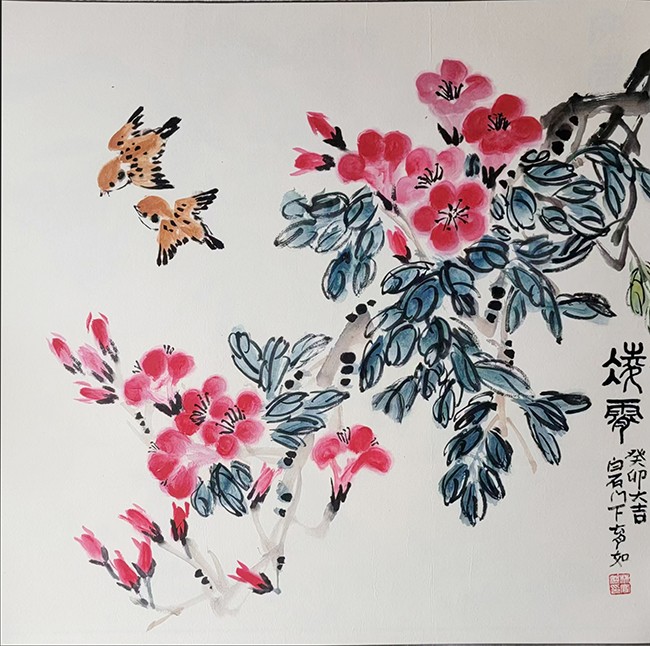 凌霄
癸卯大吉
白石门下梦如